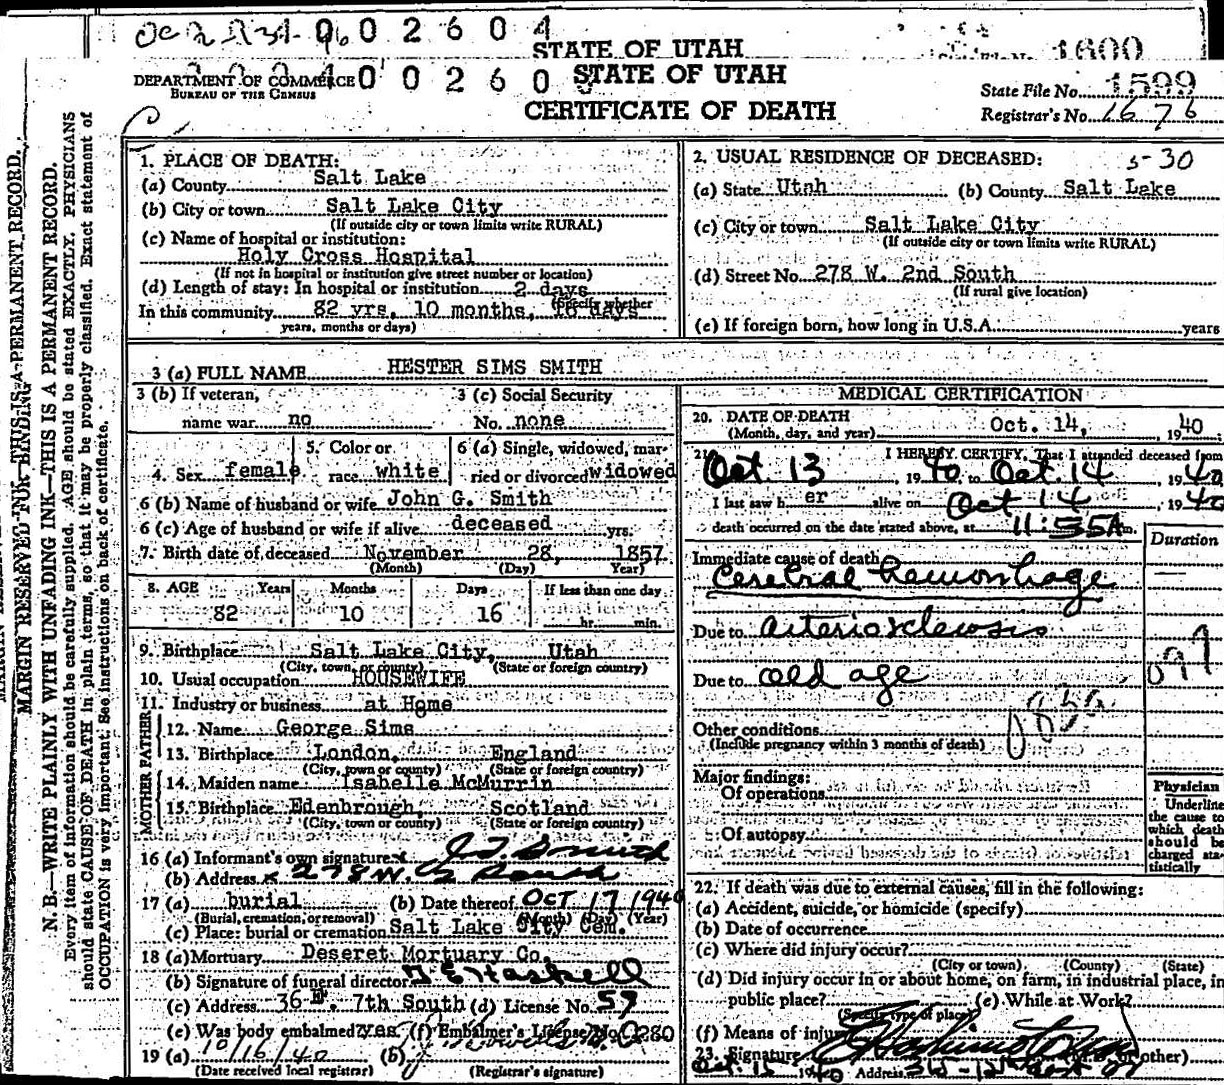 0 0 2 6 0 4
STATE OF UTAH 1600
DEPARTMENT OF COMMERCE 0 0 2 6 0 STATE OF UTAH
BUREAU OF THE CENSUS
CERTIFICATE OF DEATH
State File No. 1599
Registrar's No. 1676
MARGIN RESERVED FOR BINDING
THIS IS A PERMANENT RECORD.
N. B.—WRITE PLAINLY WITH UNFADING INK—THIS IS A PERMANENT RECORD.
Every item of information should be carefully supplied. AGE should be stated EXACTLY. PHYSICIANS
should state CAUSE OF DEATH in plain terms, so that it may be properly classified. Exact statement of
OCCUPATION is very important. See instructions on back of certificate.
1. PLACE OF DEATH:
(a) County Salt Lake
(b) City or town Salt Lake City
(If outside city or town limits write RURAL)
(c) Name of hospital or institution:
Holy Cross Hospital
(If not in hospital or institution give street number or location)
(d) Length of stay: In hospital or institution 2 days
(Specify whether
In this community 82 yrs, 10 months, 16 days
years, months or days)
2. USUAL RESIDENCE OF DECEASED: 5-30
(a) State Utah (b) County Salt Lake
(c) City or town Salt Lake City
(If outside city or town limits write RURAL)
(d) Street No. 278 W. 2nd South
(If rural give location)
(e) If foreign born, how long in U.S.A. years
3 (a) FULL NAME HESTER SIMS SMITH
3 (b) If veteran, name war no
3 (c) Social Security No. none
4. Sex female
5. Color or race white
6 (a) Single, widowed, married or divorced widowed
6 (b) Name of husband or wife John G. Smith
6 (c) Age of husband or wife if alive deceased yrs.
7. Birth date of deceased November 28, 1857
(Month) (Day) Year)
8. AGE Years Months Days If less than one day
82 10 16 hr. min.
9. Birthplace Salt Lake City, Utah
(City, town, or county) (State or foreign country)
10. Usual occupation HOUSEWIFE
11. Industry or business at Home
FATHER
12. Name George Sims
13. Birthplace London, England
(City, town or county) (State or foreign country)
MOTHER
14. Maiden name Isabelle McMurrin
15. Birthplace Edenbrough, Scotland
(City, town or county) (State or foreign country)
16 (a) Informant's own signature x J G Smith
(b) Address x 278 W. 2 South
17 (a) burial (b) Date thereof OCT 17 1940
(Burial, cremation, or removal) (Month) (Day) (Year)
(c) Place: burial or cremation Salt Lake City Cem.
18 (a) Mortuary Deseret Mortuary Co.
(b) Signature of funeral director Haskell
(c) Address 36 E. 7th South (d) License No. 59
(e) Was body embalmed? yes (f) Embalmer's License No. 280
19 (a) 10/16/40 (b)
(Date received local registrar) (Registrar's signature)
MEDICAL CERTIFICATION
20. DATE OF DEATH
(Month, day, and year) Oct. 14, 1940
21. I HEREBY CERTIFY, That I attended deceased from
Oct. 13, 1940, to Oct. 14, 1940
I last saw her alive on Oct 14, 1940
death occurred on the date stated above, at 11:55A m.
Duration
Immediate cause of death
Cerebral hemorrhage
Due to arteriosclerosis
Due to old age
Other conditions
(Include pregnancy within 3 months of death)
Major findings:
Of operations
Of autopsy
Physician
Underline
the cause to
which death
should be
charged sta-
tistically
22. If death was due to external causes, fill in the following:
(a) Accident, suicide, or homicide (specify)
(b) Date of occurrence
(c) Where did injury occur?
(City or town) (County) (State)
(d) Did injury occur in or about home, on farm, in industrial place, in
public place? (e) While at Work?
(Specify type of place)
(f) Means of injury
23. Signature (M. D. or other)
Oct. 15 1940 Address